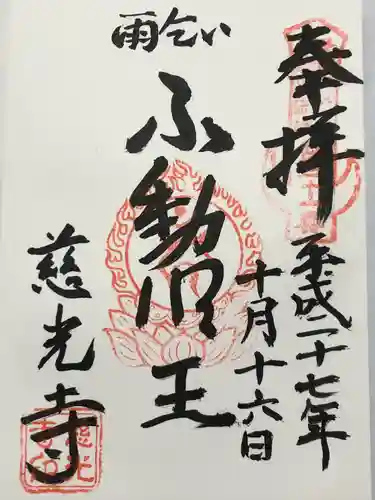 奉拝
平成二十七年
十月十六日
雨乞い
ふ動明王
慈光寺